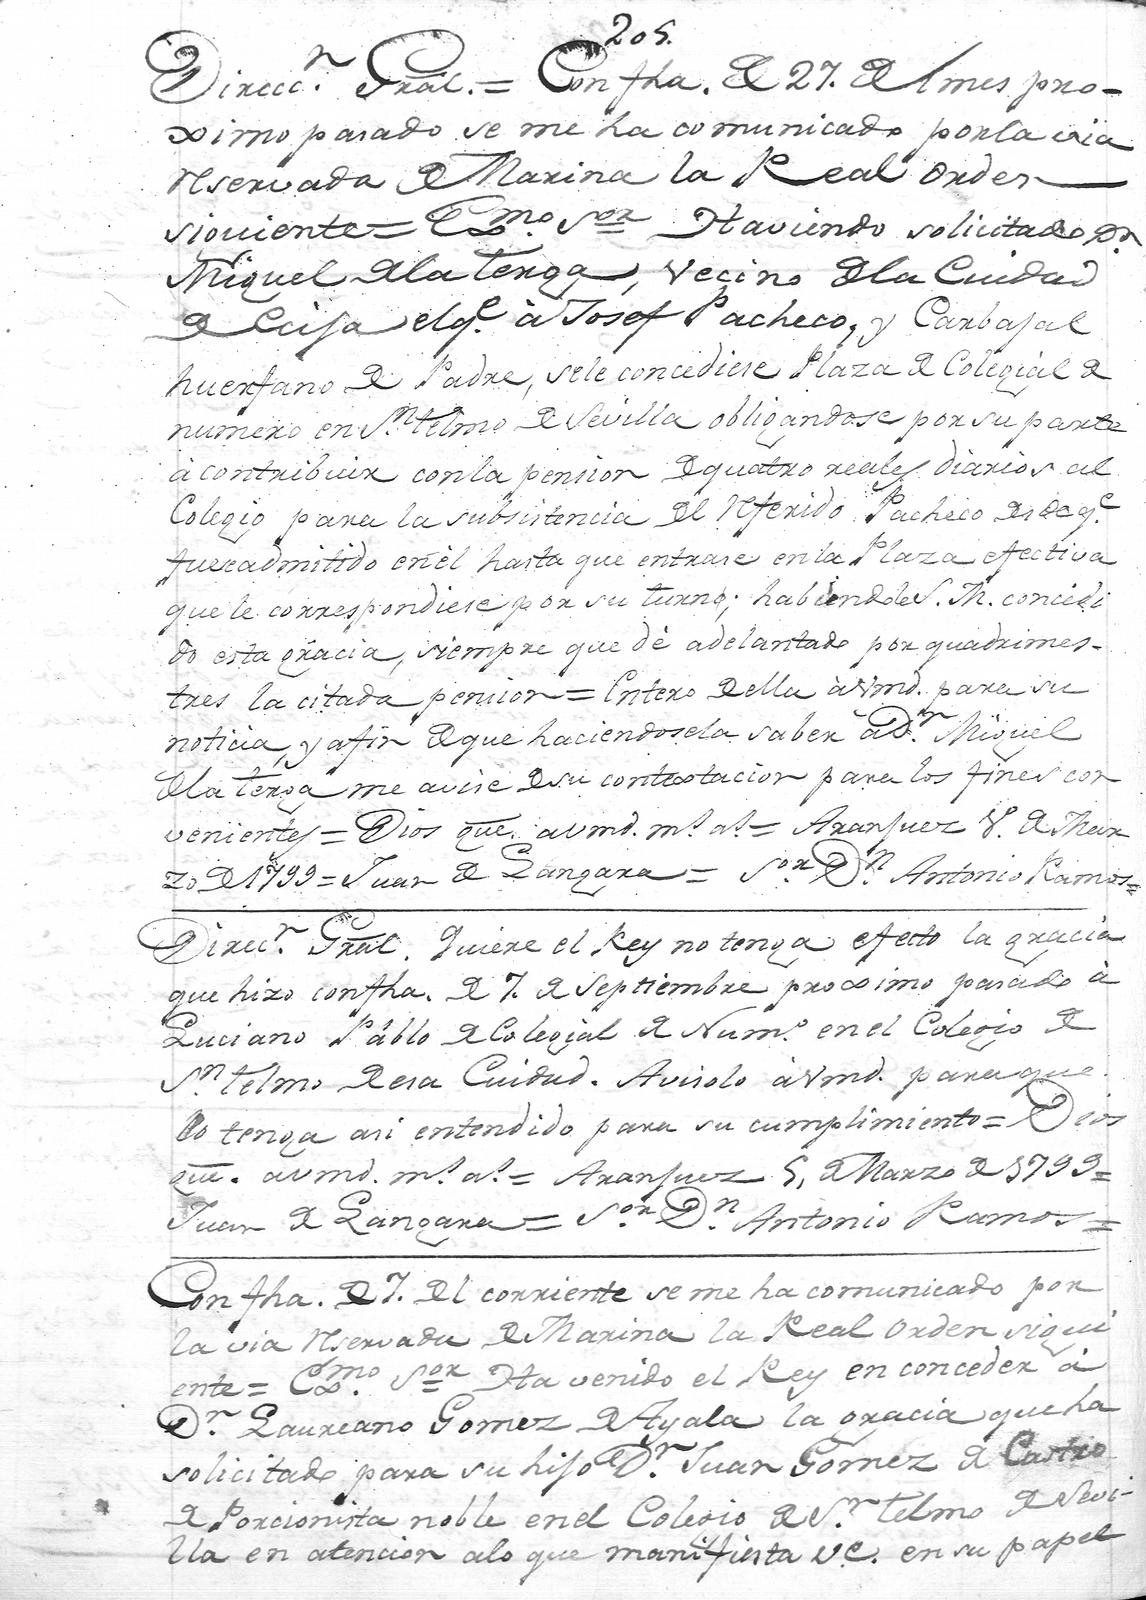 205.
Direcc.n Gräl. = Con fha. de 27. del mes pro-
ximo pasado se me ha comunicado por la via
reservada de Marina la Real Orden
siguiente = Exmo. Sor Haviendo solicitado Dn.
Miguel de la tenga, vecino de la Cuidad
de Ecija el q.e à Josef Pacheco, y Carbajal
huerfano de Padre, sele concediese Plaza de Colegial de
numero en Sn telmo de Sevilla obligandose por su parte
à contribuir con la pension de quatro reales diarios al
Colegio para la subsistencia del referido Pacheco desde q.e
fuere admitido en él hasta que entrase en la Plaza efectiva
que le correspondiese por su turno; habiendole S. M. concedi
do esta gracia, siempre que dé adelantado por quadrimes-
tres la citada pension = Entero de ella à Vmd. para su
noticia, y afin de que haciendosela saber à D.n Miguel
de la tenga me avise de su contextacion para los fines con
venientes = Dios gue. a vmd. m.s a.s = Aranjuez 8. de Mar
zo de 1799 = Juan de Langara = Sor Dn Antonio Ramos =
Direc.n Gräl. Quiere el Rey no tenga efecto la gracia
que hizo con fha. de 7. de Septiembre proximo pasado à
Luciano Páblo de Colegial de Num.o en el Colegio de
Sn telmo de esa Cuidad. Avisolo à Vmd. para que
lo tenga asi entendido para su cumplimiento = Dios
gue. a vmd. m.s a.s = Aranjuez 5, de Marzo de 1799 =
Juan de Langara = Sor Dn. Antonio Ramos =
Con fha. de 7. del corriente se me ha comunicado por
la via reservada de Marina la Real Orden sigui
ente = Exmo. Sor Ha venido el Rey en conceder à
D.n Laureano Gomez de Ayala la gracia que ha
solicitado para su hijo D.n Juan Gomez de Castro
de Porcionista noble en el Colegio de S.n telmo de Sevi-
lla en atencion alo que manifiesta VE. en su papel